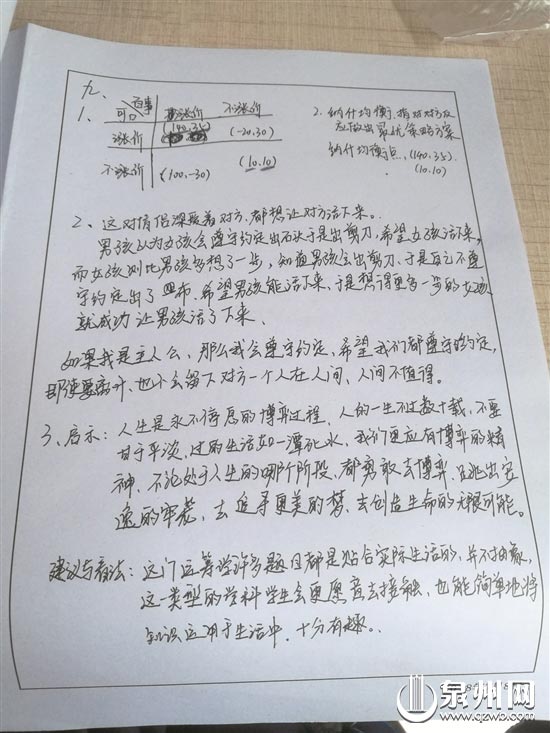 九、
1、
可口 百事 涨价 不涨价
涨价 (140,35) (-20,30)
不涨价 (100,-30) (10,10)
2、纳什均衡，指对对方反
应做出最优策略方案
纳什均衡点：(140,35)
(10,10)
2、这对情侣深爱着对方，都想让对方活下来。
男孩认为女孩会遵守约定出石头于是出剪刀，希望女孩活下来，
而女孩则比男孩多想了一步，知道男孩会出剪刀，于是自己不遵
守约定出了布，希望男孩能活下来，于是想得更多一步的女孩
就成功让男孩活了下来、
如果我是主人公，那么我会遵守约定，希望我们都遵守约定，
即使要离开，也不会留下对方一个人在人间，人间不值得。
3、启示：人生是永不停息的博弈过程，人的一生不过数十载，不要
甘于平淡，过的生活如一潭死水，我们更应有博弈的精
神，不论处于人生的哪个阶段，都勇敢去博弈，跳出安
逸的牢笼，去追寻更美的梦，去创造生命的无限可能。
建议与看法：这门运筹学许多题目都是贴合实际生活的，并不抽象，
这一类型的学科学生会更愿意去接触，也能简单地将
知识运用于生活中，十分有趣。
泉州网
www.qzwb.com